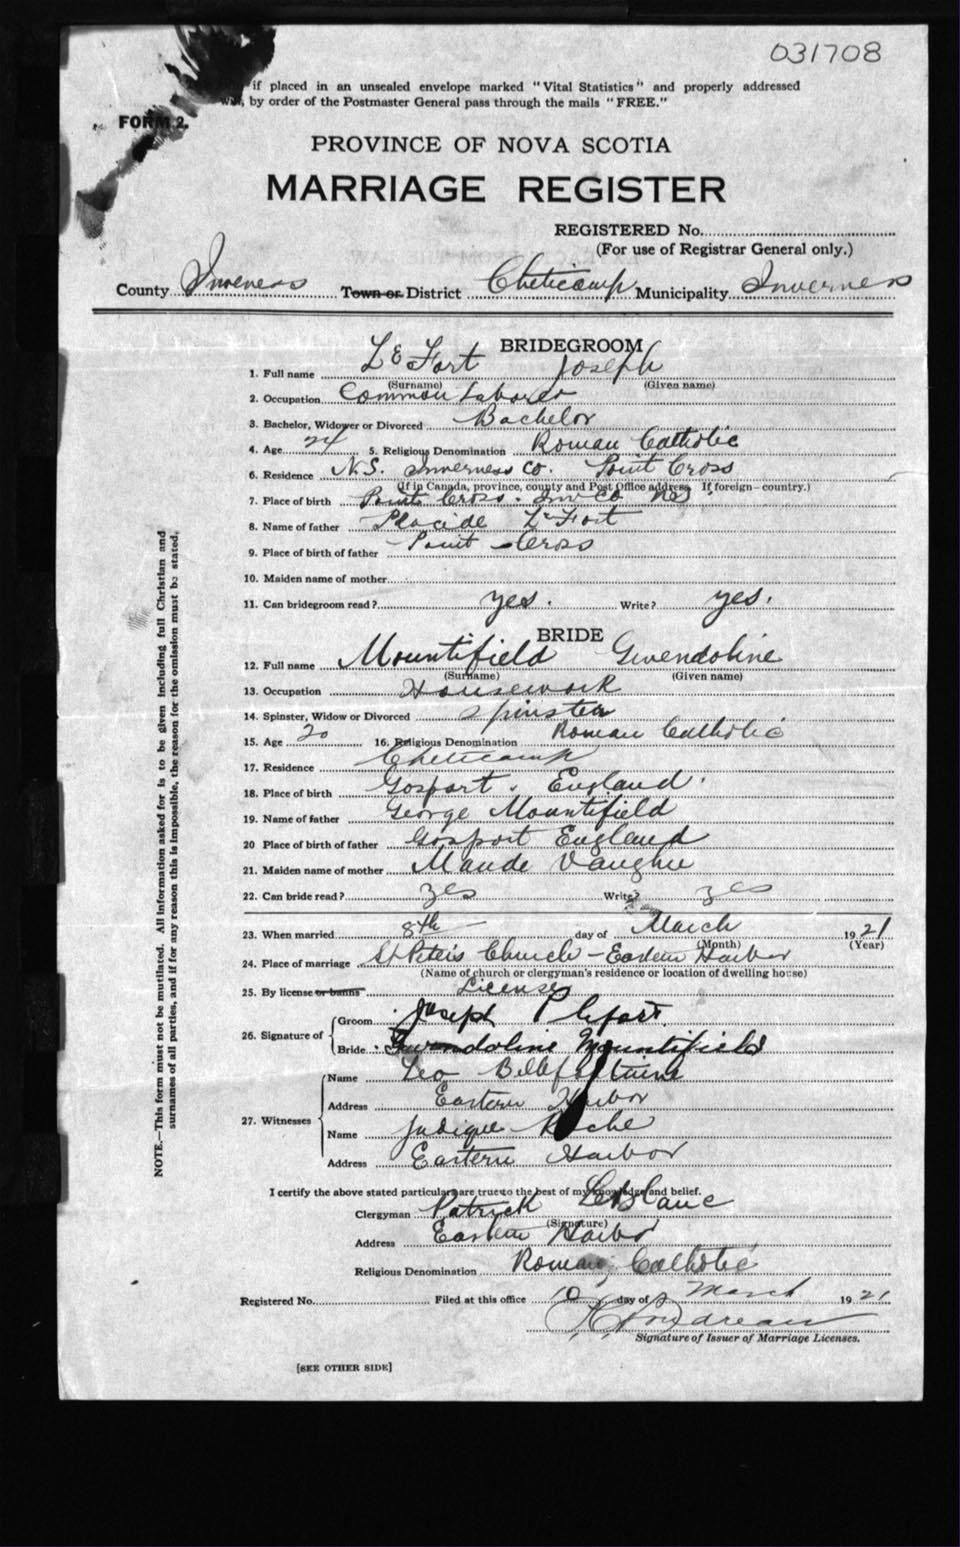 031708
if placed in an unsealed envelope marked "Vital Statistics" and properly addressed
will, by order of the Postmaster General pass through the mails "FREE."
FORM 2.
PROVINCE OF NOVA SCOTIA
MARRIAGE REGISTER
REGISTERED No.
(For use of Registrar General only.)
County Inverness Town or District Cheticamp Municipality Inverness
BRIDEGROOM
1. Full name LeFort Joseph
(Surname) (Given name)
2. Occupation Common Laborer
3. Bachelor, Widower or Divorced Bachelor
4. Age 24 5. Religious Denomination Roman Catholic
6. Residence N.S. Inverness Co. Point Cross
(If in Canada, province, county and Post Office address. If foreign—country.)
7. Place of birth Point Cross. Inv Co NS
8. Name of father Placide LeFort
9. Place of birth of father Point Cross
10. Maiden name of mother
11. Can bridegroom read? yes. Write? yes.
BRIDE
12. Full name Mountifield Gwendoline
(Surname) (Given name)
13. Occupation Housework
14. Spinster, Widow or Divorced Spinster
15. Age 20 16. Religious Denomination Roman Catholic
17. Residence Cheticamp
18. Place of birth Gosport. England.
19. Name of father George Mountifield
20 Place of birth of father Gosport England
21. Maiden name of mother Maude Vaughn
22. Can bride read? yes Write? yes
23. When married 8th day of March 1921
(Month) (Year)
24. Place of marriage St Peter's Church - Eastern Harbor
(Name of church or clergyman's residence or location of dwelling house)
25. By license or banns License
26. Signature of Groom Joseph P lefort.
Bride Gwendoline Mountifield
27. Witnesses Name Leo Bellefontaine
Address Eastern Harbor
Name Judique Roche
Address Eastern Harbor
I certify the above stated particulars are true to the best of my knowledge and belief.
Clergyman Patrick LeBlanc
(Signature)
Address Eastern Harbor
Religious Denomination Roman Catholic
Registered No. Filed at this office 10 day of March 1921
Signature of Issuer of Marriage Licenses.
[SEE OTHER SIDE]
NOTE.—This form must not be mutilated. All information asked for is to be given including full Christian and
surnames of all parties, and if for any reason this is impossible, the reason for the omission must be stated.